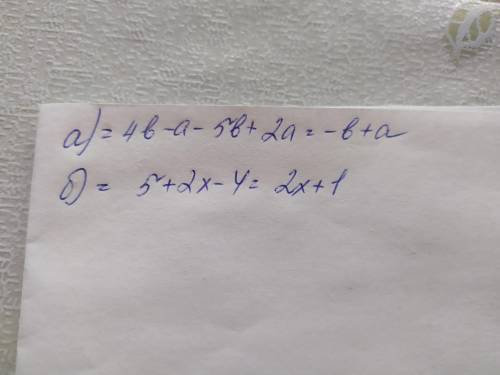 а) = 4в-а-5в+2а = -в+а
б) = 5+2х-4 = 2х+1